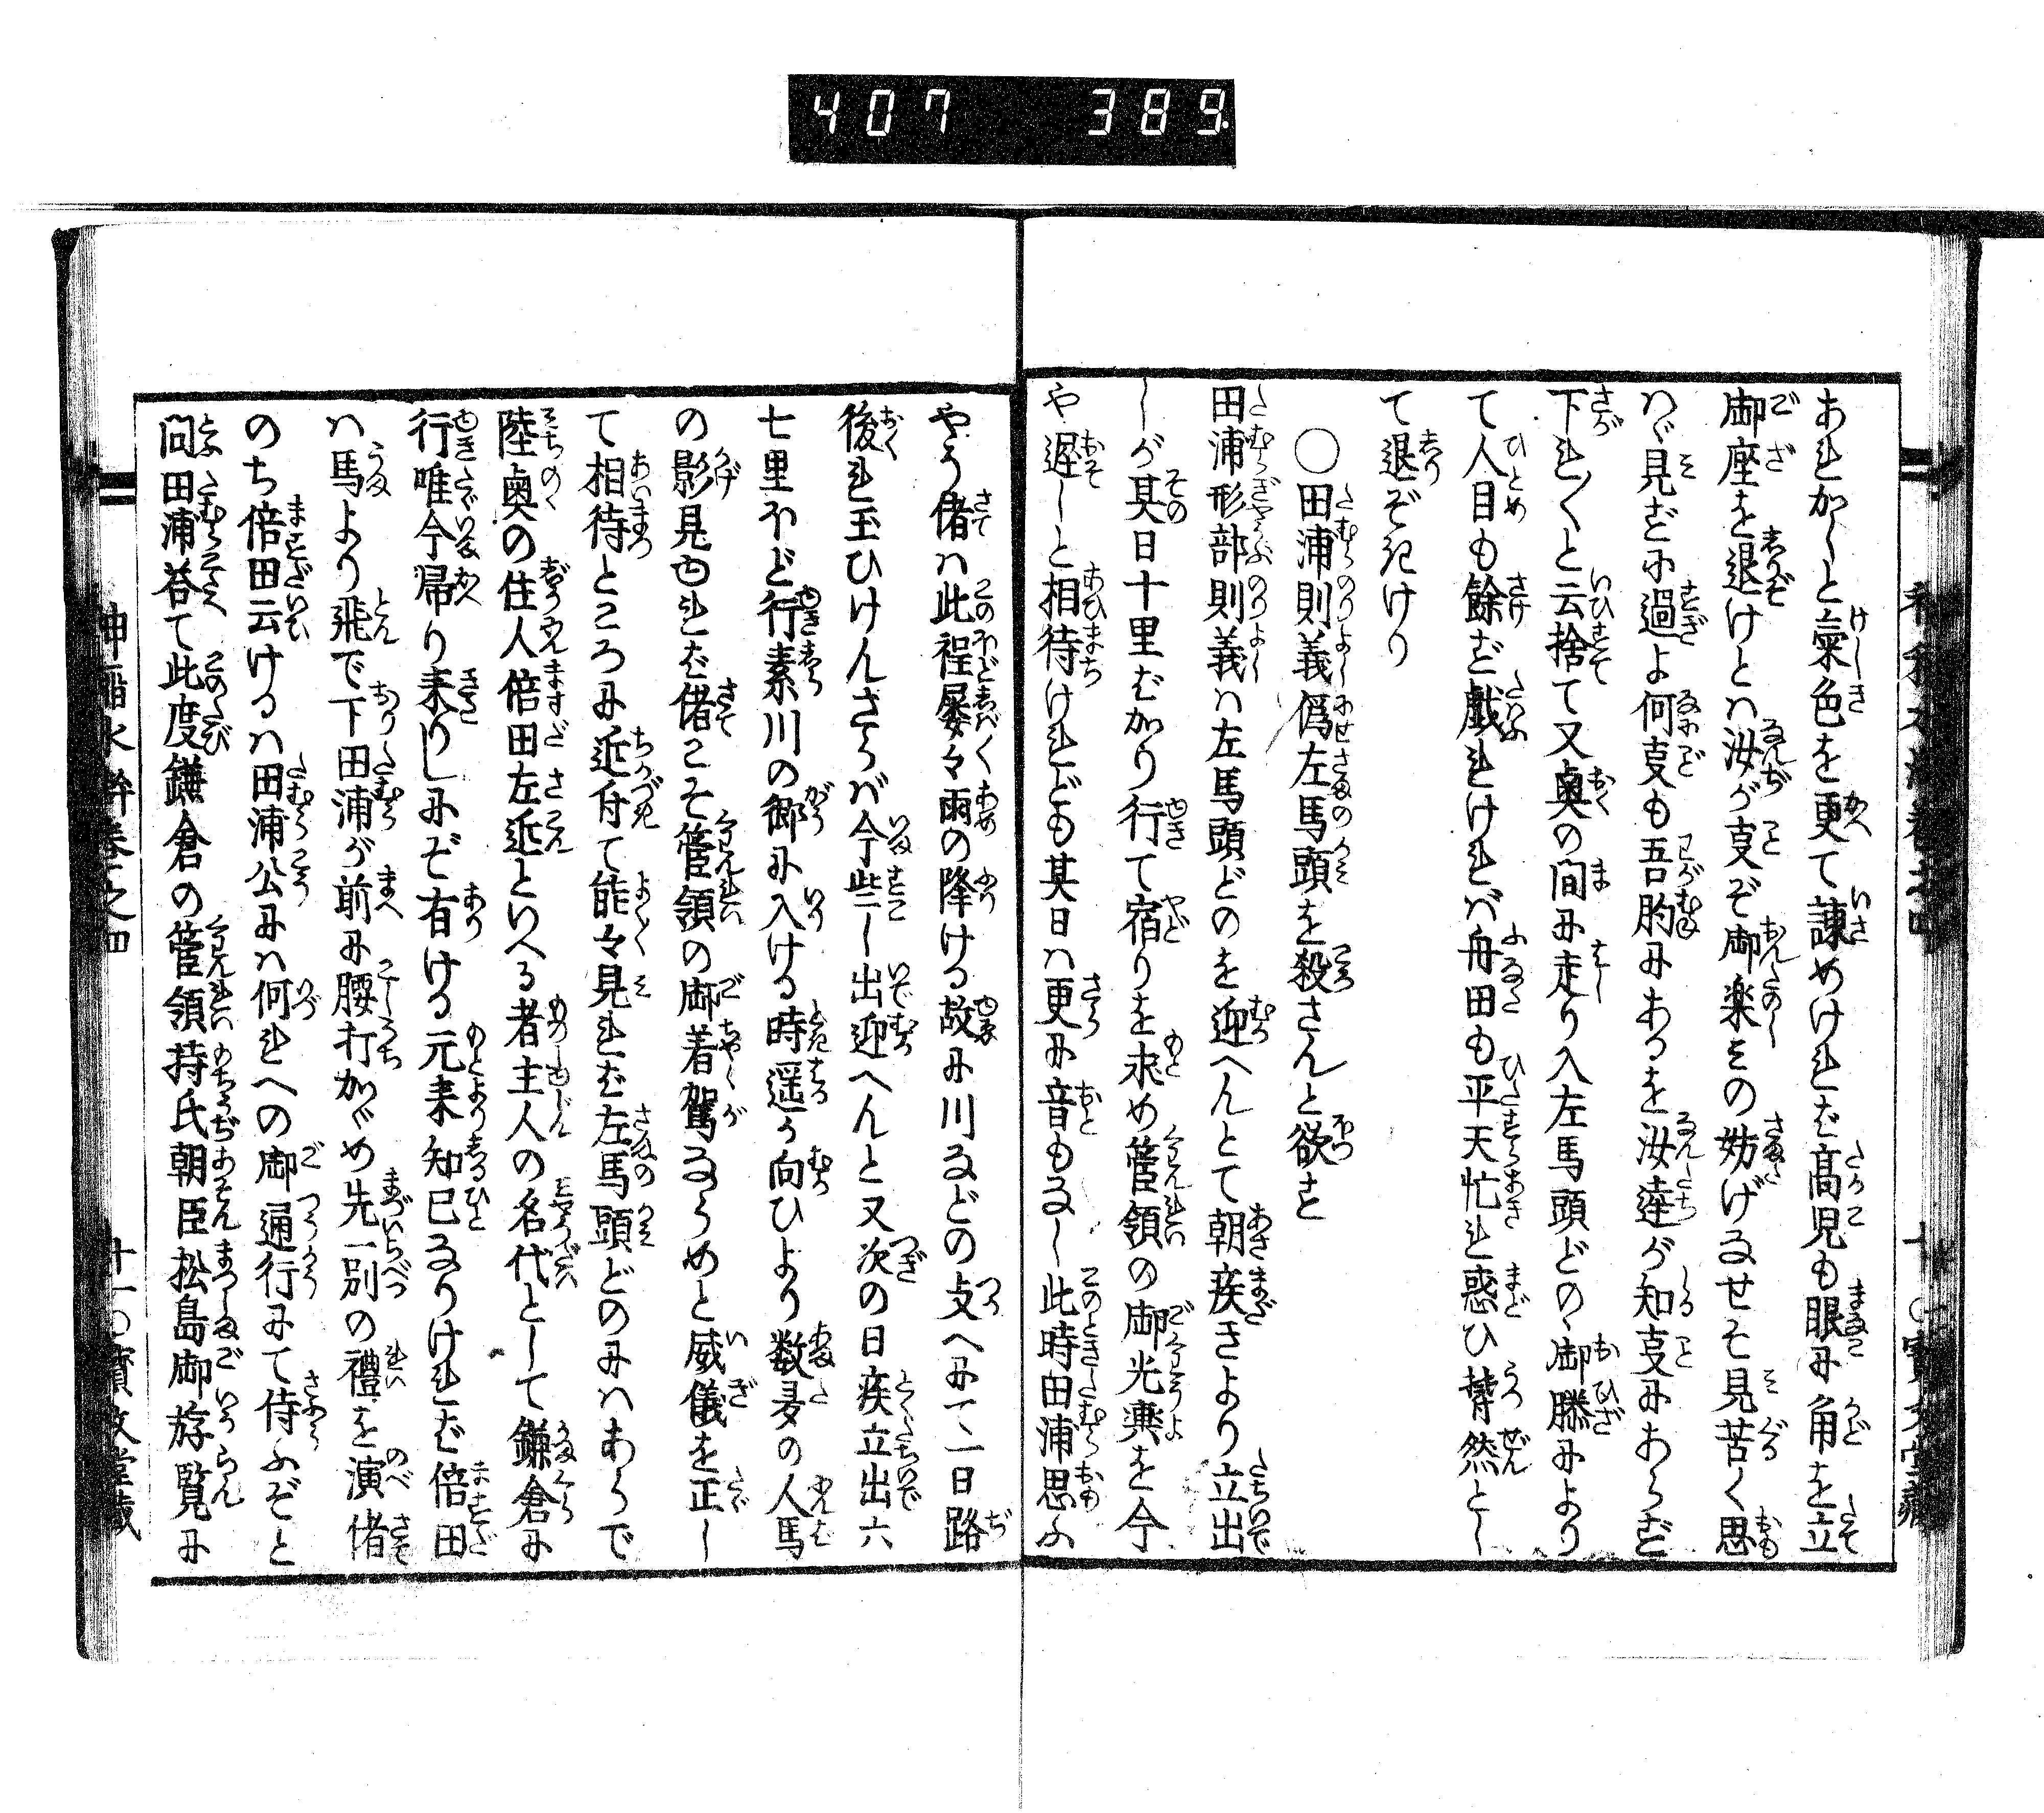 407 389
あれかしと氣色を更て諌めければ高児も眼に角を立
御座を退けとは汝が㕝ぞ御楽みの妨げなせそ見苦く思
はゞ見ずに過よ何㕝も吾胸にあるを汝達が知㕝にあらず
下れ〳〵と云捨て又奥の間に走り入左馬頭どのゝ御膝により
て人目も餘ず戯れければ舟田も平天忙れ惑ひ聳然とし
て退ぞきけり
〇田浦則義偽左馬頭を殺さんと欲す
田浦形部則義は左馬頭どのを迎へんとて朝疾きより立出
しが其日十里ばかり行て宿りを求め管領の御光輿を今
や遅しと相待けれども其日は更に音もなし此時田浦思ふ
やう偖は此程屡々雨の降ける故に川などの支へにて一日路
後れ玉ひけんさらば今些し出迎へんと又次の日疾立出六
七里ほど行素川の郷に入ける時遥か向ひより数多の人馬
の影見ゆれば偖こそ管領の御着駕ならめと威儀を正し
て相待ところに近付て能々見れば左馬頭どのにはあらで
陸奥の住人倍田左近といへる者主人の名代として鎌倉に
行唯今帰り来りしにぞ有ける元来知己なりければ倍田
は馬より飛で下田浦が前に腰打かゞめ先一別の禮を演偖
のち倍田云けるは田浦公には何れへの御通行にて侍ふぞと
問田浦答て此度鎌倉の管領持氏朝臣松島御斿覧に
神稲水滸巻之四
十一〇寳文堂藏